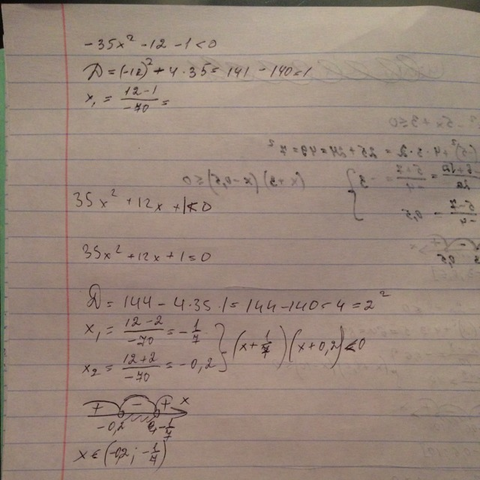 -35x² -12 -1 < 0
D = (-12)² + 4·35 = 141 - 140 = 1
x₁ = (12-1)/(-70) =
35x² + 12x + 1 < 0
35x² + 12x + 1 = 0
D = 144 - 4·35·1 = 144 - 140 = 4 = 2²
x₁ = (12-2)/(-70) = -1/7
x₂ = (12+2)/(-70) = -0,2 } (x + 1/7)(x + 0,2) < 0
+ - + x
-0,2 -1/7
x ∈ (-0,2; -1/7)